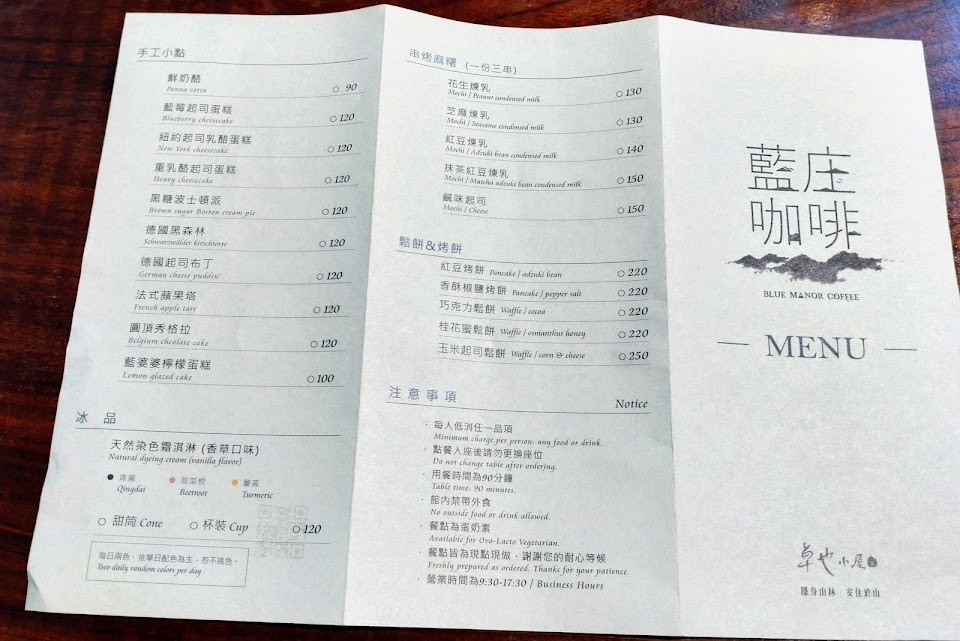 手工小點
鮮奶酪
Panna cotta
90
藍莓起司蛋糕
Blueberry cheesecake
120
紐約起司乳酪蛋糕
New York cheesecake
120
重乳酪起司蛋糕
Heavy cheesecake
120
黑糖波士頓派
Brown sugar Boston cream pie
120
德國黑森林
Schwarzwälder kirschtorte
120
德國起司布丁
German cheese puddin'
120
法式蘋果塔
French apple tart
120
圓頂秀格拉
Belgium chcolate cake
120
藍婆婆檸檬蛋糕
Lemon glazed cake
100
冰 品
天然染色霜淇淋 (香草口味)
Natural dyeing cream (vanilla flavor)
青黛 甜菜根 薑黃
Qingdai Beetroot Turmeric
甜筒 Cone 杯裝 Cup 120
每日兩色、依單日配色為主、恕不挑色。
Two daily random colors per day
串烤麻糬 (一份三串)
花生煉乳
Mochi / Peanut condensed milk
130
芝麻煉乳
Mochi / Seasame condensed milk
130
紅豆煉乳
Mochi / Adzuki bean condensed milk
140
抹茶紅豆煉乳
Mochi / Matcha adzuki bean condensed milk
150
鹹味起司
Mochi / Cheese
150
鬆餅&烤餅
紅豆烤餅 Pancake / adzuki bean 220
香酥椒鹽烤餅 Pancake / pepper salt 220
巧克力鬆餅 Waffle / cocoa 220
桂花蜜鬆餅 Waffle / osmanthus honey 220
玉米起司鬆餅 Waffle / corn & cheese 250
注意事項 Notice
· 每人低消任一品項
Minimum charge per person: any food or drink.
· 點餐入座後請勿更換座位
Do not change table after ordering.
· 用餐時間為90分鐘
Table time: 90 minutes.
· 館內禁帶外食
No outside food or drink allowed.
· 餐點為蛋奶素
Available for Ovo-Lacto Vegetarian.
· 餐點皆為現點現做，謝謝您的耐心等候
Freshly prepared as ordered. Thanks for your patience.
· 營業時間為9:30-17:30 / Business Hours
藍庄
咖啡
BLUE MANOR COFFEE
— MENU —
卓也小屋
隱身山林 · 安住於山